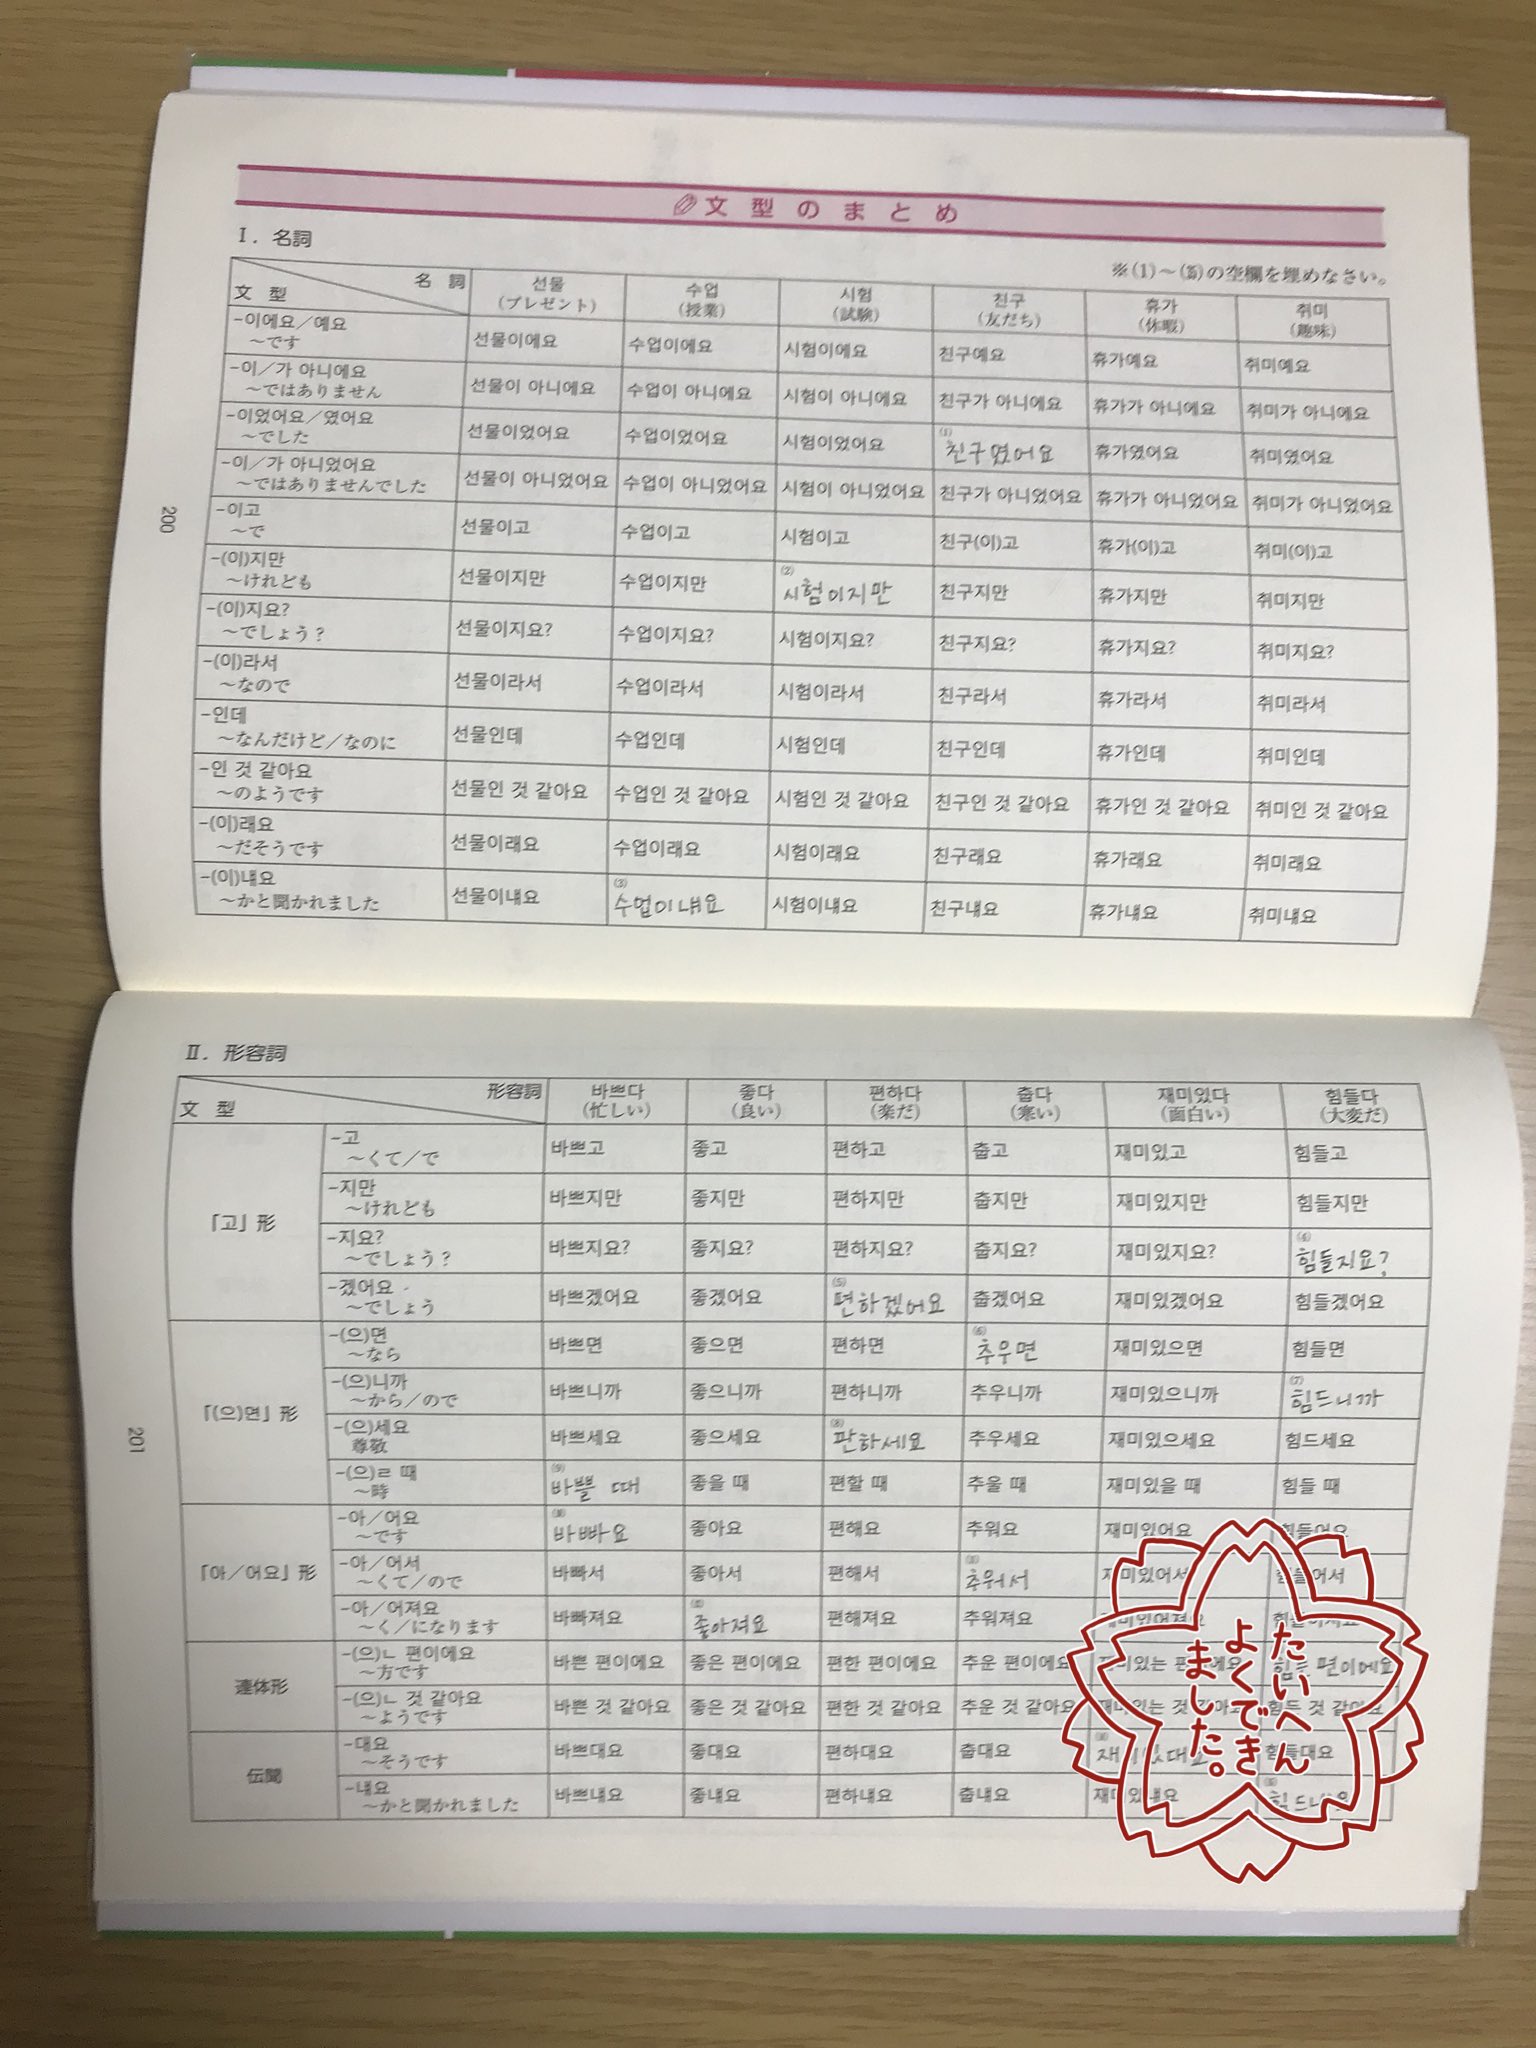 文型のまとめ
Ⅰ. 名詞
※(1)~(15)の空欄を埋めなさい。
文型 名詞 선물 (プレゼント) 수업 (授業) 시험 (試験) 친구 (友だち) 휴가 (休暇) 취미 (趣味)
-이에요/예요 ~です 선물이에요 수업이에요 시험이에요 친구예요 휴가예요 취미예요
-이/가 아니에요 ~ではありません 선물이 아니에요 수업이 아니에요 시험이 아니에요 친구가 아니에요 휴가가 아니에요 취미가 아니에요
-이었어요/였어요 ~でした 선물이었어요 수업이었어요 시험이었어요 (1) 친구였어요 휴가였어요 취미였어요
-이/가 아니었어요 ~ではありませんでした 선물이 아니었어요 수업이 아니었어요 시험이 아니었어요 친구가 아니었어요 휴가가 아니었어요 취미가 아니었어요
-이고 ~で 선물이고 수업이고 시험이고 친구(이)고 휴가(이)고 취미(이)고
-(이)지만 ~けれども 선물이지만 수업이지만 (2) 시험이지만 친구지만 휴가지만 취미지만
-(이)지요? ~でしょう? 선물이지요? 수업이지요? 시험이지요? 친구지요? 휴가지요? 취미지요?
-(이)라서 ~なので 선물이라서 수업이라서 시험이라서 친구라서 휴가라서 취미라서
-인데 ~なんだけど/なのに 선물인데 수업인데 시험인데 친구인데 휴가인데 취미인데
-인 것 같아요 ~のようです 선물인 것 같아요 수업인 것 같아요 시험인 것 같아요 친구인 것 같아요 휴가인 것 같아요 취미인 것 같아요
-(이)래요 ~だそうです 선물이래요 수업이래요 시험이래요 친구래요 휴가래요 취미래요
-(이)냬요 ~かと聞かれました 선물이냬요 (3) 수업이냬요 시험이냬요 친구냬요 휴가냬요 취미냬요
200
Ⅱ. 形容詞
文型 形容詞 바쁘다 (忙しい) 좋다 (良い) 편하다 (楽だ) 춥다 (寒い) 재미있다 (面白い) 힘들다 (大変だ)
「고」形
-고 ~くて/で 바쁘고 좋고 편하고 춥고 재미있고 힘들고
-지만 ~けれども 바쁘지만 좋지만 편하지만 춥지만 재미있지만 힘들지만
-지요? ~でしょう? 바쁘지요? 좋지요? 편하지요? 춥지요? 재미있지요? (4) 힘들지요?
-겠어요 ~でしょう 바쁘겠어요 좋겠어요 (5) 편하겠어요 춥겠어요 재미있겠어요 힘들겠어요
「(으)면」形
-(으)면 ~なら 바쁘면 좋으면 편하면 (6) 추우면 재미있으면 힘들면
-(으)니까 ~から/ので 바쁘니까 좋으니까 편하니까 추우니까 재미있으니까 (7) 힘드니까
-(으)세요 尊敬 바쁘세요 좋으세요 (8) 판하세요 추우세요 재미있으세요 힘드세요
-(으)ㄹ 때 ~時 (9) 바쁠 때 좋을 때 편할 때 추울 때 재미있을 때 힘들 때
「아/어요」形
-아/어요 ~です (10) 바빠요 좋아요 편해요 추워요 재미있어요 힘들어요
-아/어서 ~くて/ので 바빠서 좋아서 편해서 (11) 추워서 재미있어서 힘들어서
-아/어져요 ~く/になります 바빠져요 (12) 좋아져요 편해져요 추워져요 재미있어져요
連体形
-(으)ㄴ 편이에요 ~方です 바쁜 편이에요 좋은 편이에요 편한 편이에요 추운 편이에요 재미있는 편이에요 힘든 편이에요
-(으)ㄴ 것 같아요 ~ようです 바쁜 것 같아요 좋은 것 같아요 편한 것 같아요 추운 것 같아요 재미있는 것 같아요 힘든 것 같아요
伝聞
-대요 ~そうです 바쁘대요 좋대요 편하대요 춥대요 재미있대요 힘들대요
-냬요 ~かと聞かれました 바쁘냬요 좋냬요 편하냬요 춥냬요 재미있냬요
201
たいへん
よくでき
ました。